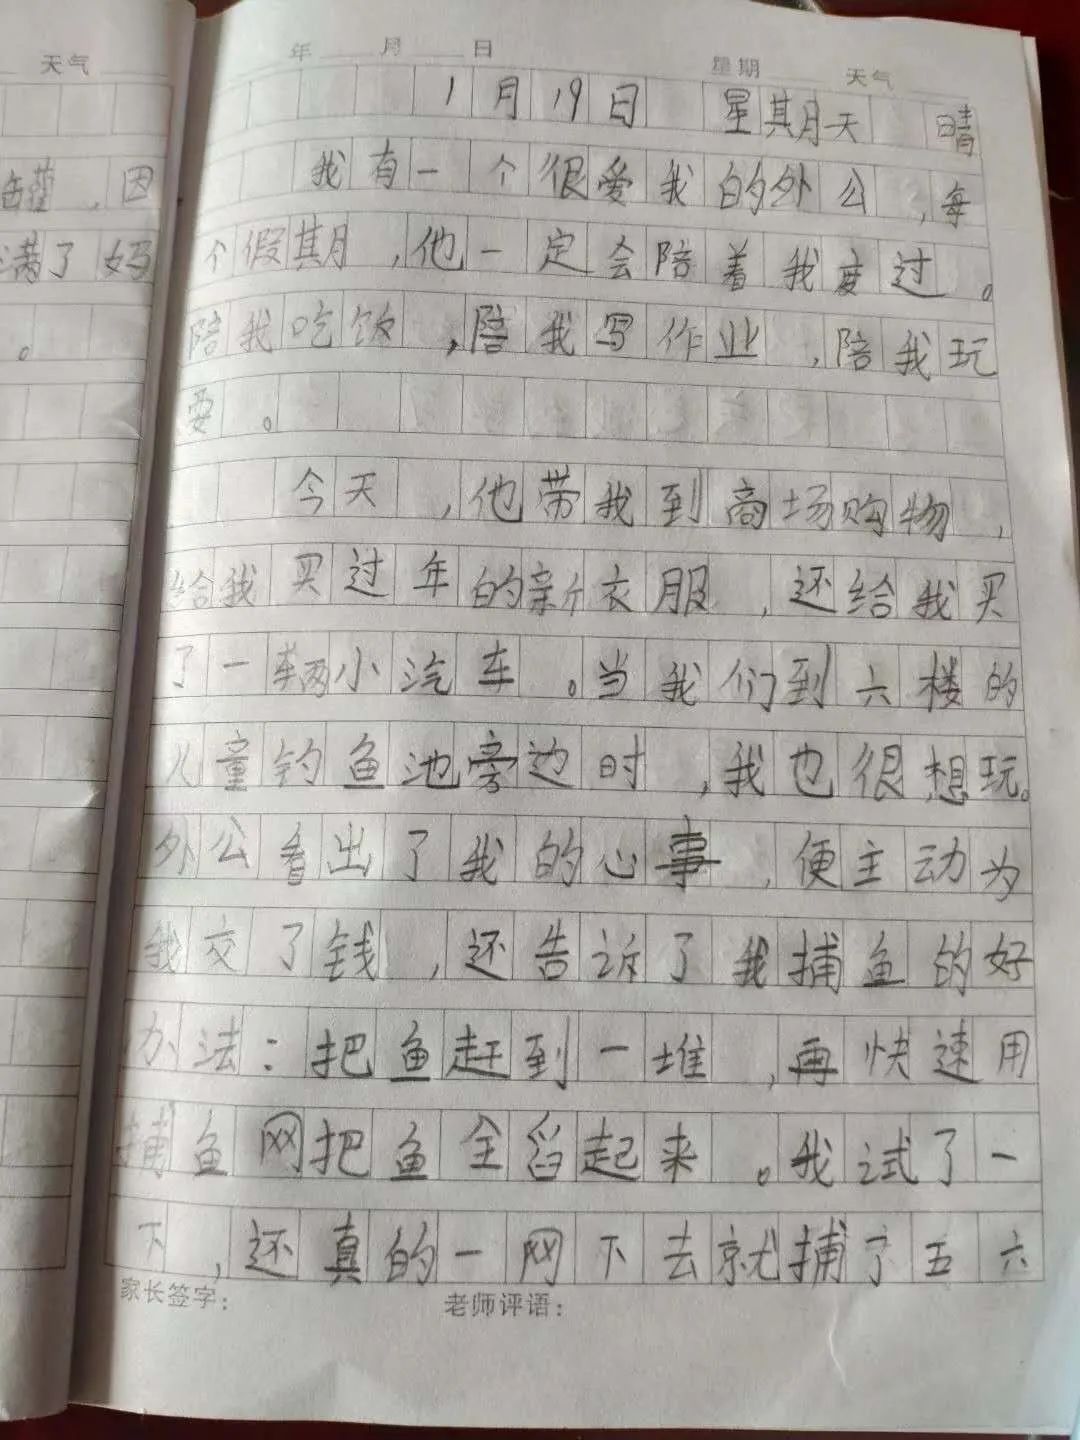 天气
因
满了妈
。
年 月 日 星期 天气
1月19日 星期天 晴
我有一个很爱我的外公,每
个假期,他一定会陪着我度过。
陪我吃饭,陪我写作业,陪我玩
耍。
今天,他带我到商场购物,
给我买过年的新衣服,还给我买
了一辆小汽车。当我们到六楼的
儿童钓鱼池旁边时,我也很想玩。
外公看出了我的心事,便主动为
我交了钱,还告诉了我捕鱼的好
办法:把鱼赶到一堆,再快速用
捕鱼网把鱼全舀起来。我试了一
下,还真的一网下去就捕了五六
家长签字: 老师评语: